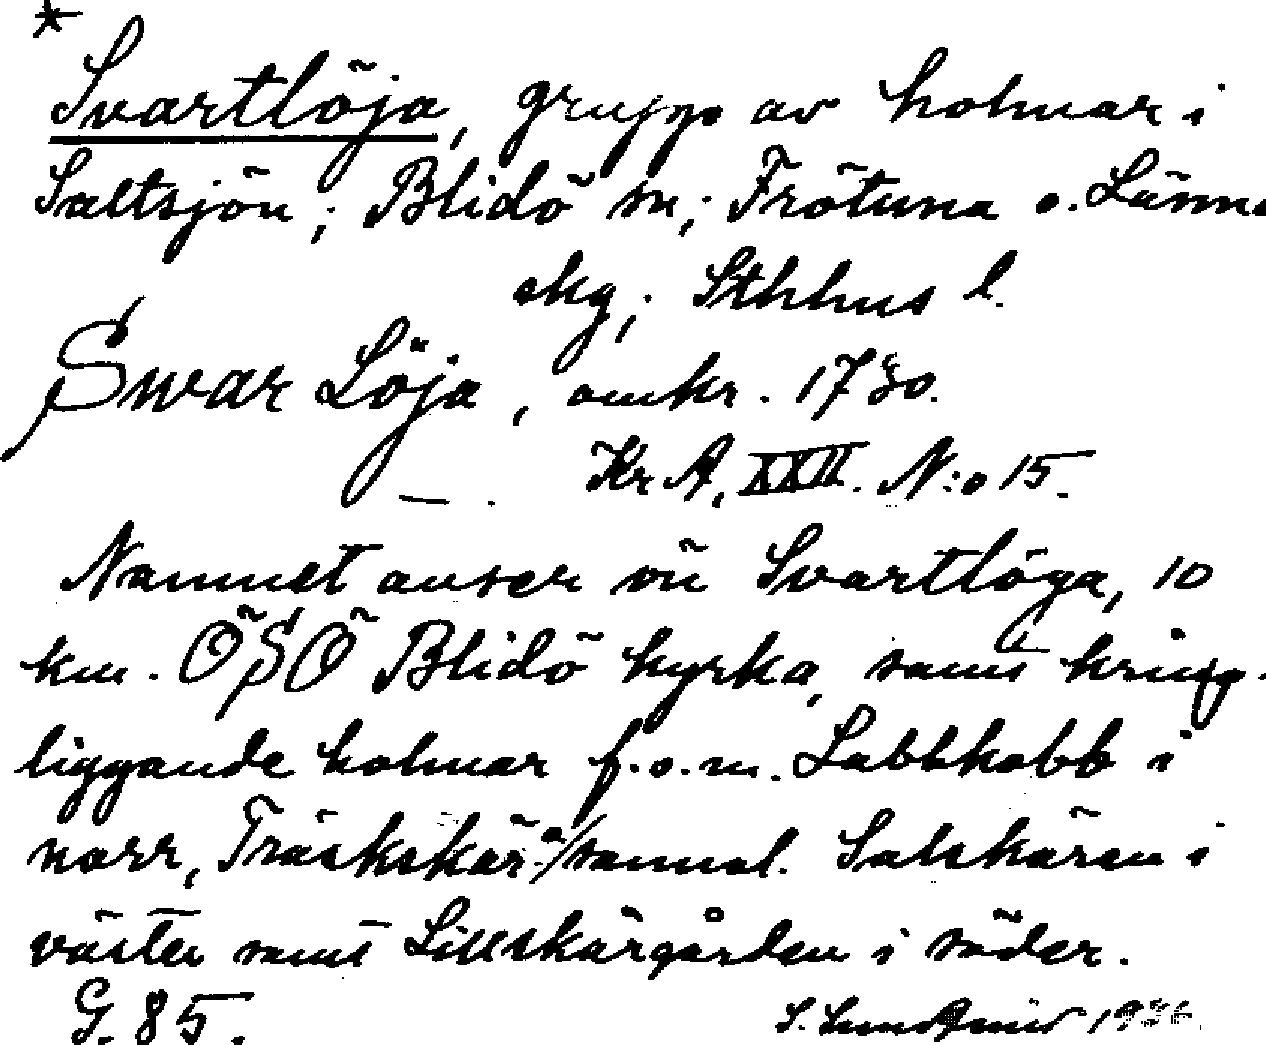 *
Svartlöja, grupp av holmar i
Saltsjön; Blidö sn; Frötuna o. Länna
skg; Sthlms l.
Swar Löja, omkr. 1730.
Kr A, XXII. N:o 15.
Namnet avser ön Svartlöga, 10
km. ÖSÖ Blidö kyrka, samt kring-
liggande holmar f.o.m. Labbkobb i
norr, Träskskär o/ samt Salskären i
väster samt Lillskärgården i söder.
G. 85. S. 1936